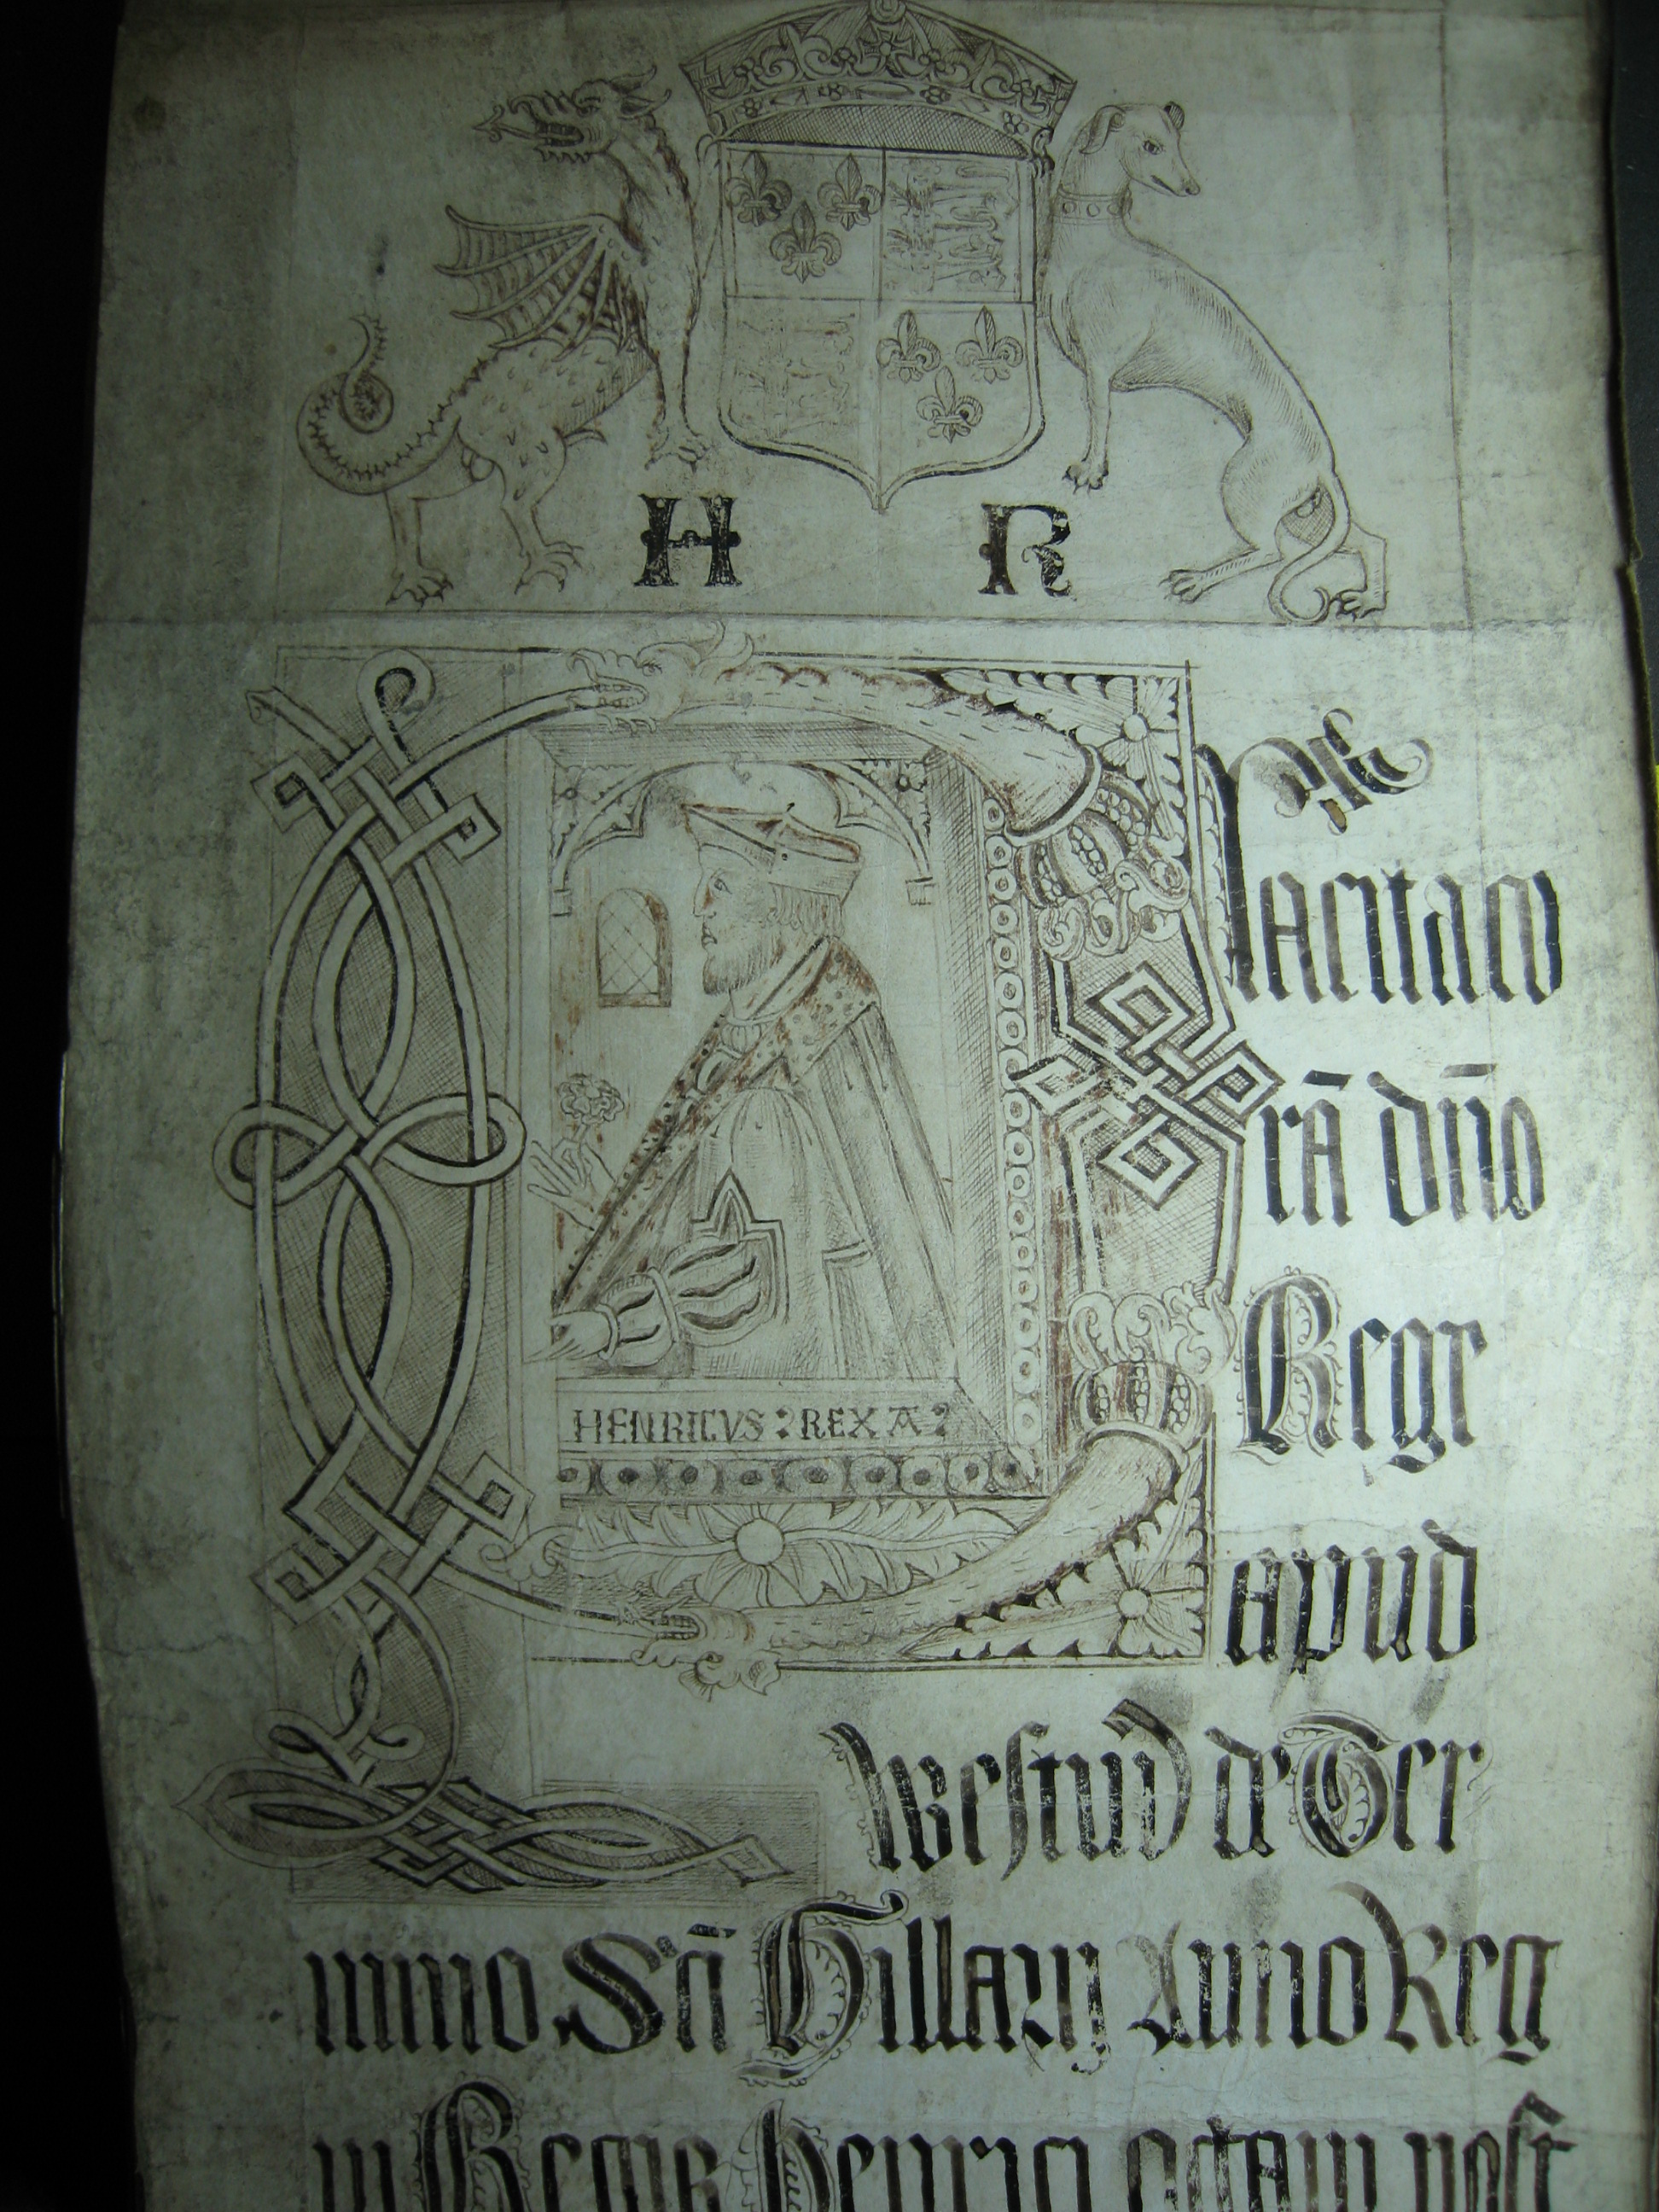 H R
HENRICVS : REX A :
lacita co
rā dño
Rege
apud
westm̄ de Ter
mino Sc̄i Hillarij Anno Reg
ni Regis henrici octaui post